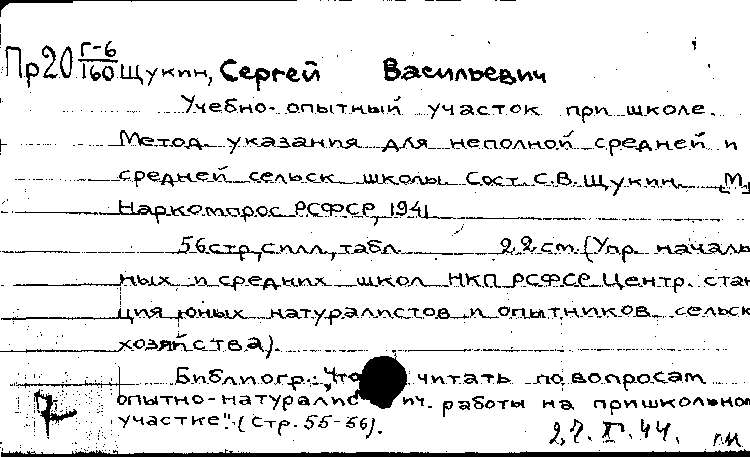 Пр20 Г-6/160 Щукин, Сергей Васильевич
Учебно-опытный участок при школе.
Метод. указания для неполной средней и
средней сельск школы. Сост. С.В. Щукин. [М.]
Наркомпрос РСФСР, 1941
56 стр, с илл, табл. 22 см. (Упр. началь
ных и средних школ НКП РСФСР. Центр. стан
ция юных натуралистов и опытников сельск
хозяйства).
Библиогр.: „Что читать по вопросам
опытно-натуралис ич. работы на пришкольном
участке". (стр. 55-56).